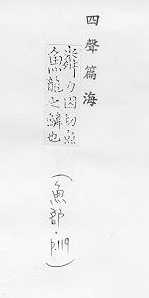 四聲篇海
粦力因切魚
魚龍之鱗也
(魚部·p.119)